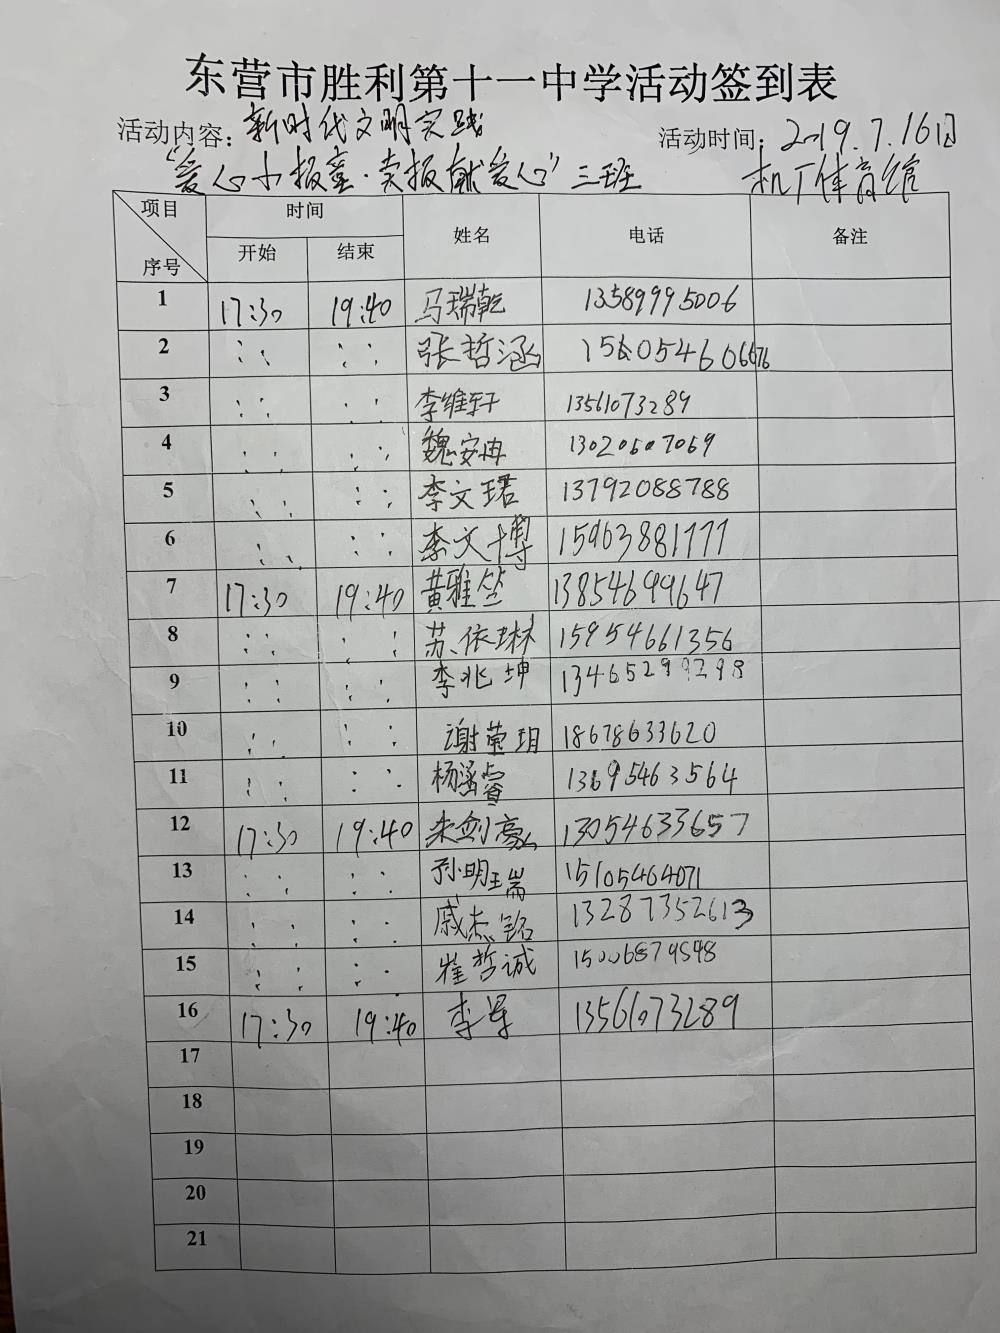 东营市胜利第十一中学活动签到表
活动内容：新时代文明实践 活动时间：2019.7.16日
"爱心小报童·卖报献爱心"三班 机厂体育馆
项目 时间 姓名 电话 备注
序号 开始 结束
1 17:30 19:40 马瑞乾 13589995006
2 : : : : 张哲涵
3 : : : : 李维轩 13561073289
4 : : : : 魏安冉
5 : : : : 李文珺 13792088788
6 : : : : 李文博 15963881777
7 17:30 19:40 黄雅竺 13854699647
8 : : : : 苏依琳 15954661356
9 : : : : 李兆坤 13465299298
10 : : : : 谢莹玥 18678633620
11 : : : : 杨涵睿 13695463564
12 17:30 19:40 朱剑豪 13054633657
13 : : : : 孙明瑞 15105464071
14 : : : : 戚杰铭 13287352613
15 : : : : 崔哲诚 15006879548
16 17:30 19:40 李军 13561073289
17
18
19
20
21